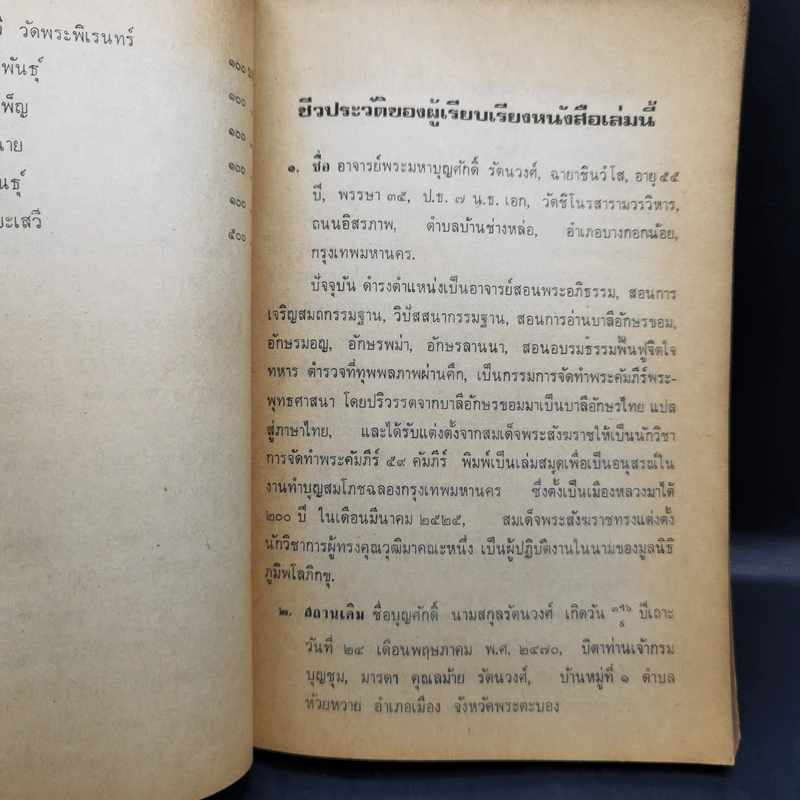 วัดพระพิเรนทร์
พันธุ์ ๑๐๐
๑๐๐
๑๐๐
๑๐๐
๑๐๐
๕๐๐
ชีวประวัติของผู้เรียบเรียงหนังสือเล่มนี้
๑. ชื่อ อาจารย์พระมหาบุญศักดิ์ รัตนวงศ์, ฉายาชินวํโส, อายุ ๕๕
ปี, พรรษา ๓๕, ป.ธ. ๗ น.ธ. เอก, วัดชิโนรสารามวรวิหาร,
ถนนอิสรภาพ, ตำบลบ้านช่างหล่อ, อำเภอบางกอกน้อย,
กรุงเทพมหานคร.
ปัจจุบัน ดำรงตำแหน่งเป็นอาจารย์สอนพระอภิธรรม, สอนการ
เจริญสมถกรรมฐาน, วิปัสสนากรรมฐาน, สอนการอ่านบาลีอักษรขอม,
อักษรมอญ, อักษรพม่า, อักษรลานนา, สอนอบรมธรรมฟื้นฟูจิตใจ
ทหาร ตำรวจที่ทุพพลภาพผ่านศึก, เป็นกรรมการจัดทำพระคัมภีร์พระ-
พุทธศาสนา โดยปริวรรตจากบาลีอักษรขอมมาเป็นบาลีอักษรไทย แปล
สู่ภาษาไทย, และได้รับแต่งตั้งจากสมเด็จพระสังฆราชให้เป็นนักวิชา
การจัดทำพระคัมภีร์ ๕๙ คัมภีร์ พิมพ์เป็นเล่มสมุดเพื่อเป็นอนุสรณ์ใน
งานทำบุญสมโภชฉลองกรุงเทพมหานคร ซึ่งตั้งเป็นเมืองหลวงมาได้
๒๐๐ ปี ในเดือนมีนาคม ๒๕๒๕, สมเด็จพระสังฆราชทรงแต่งตั้ง
นักวิชาการผู้ทรงคุณวุฒิมาคณะหนึ่ง เป็นผู้ปฏิบัติงานในนามของมูลนิธิ
ภูมิพโลภิกขุ.
๒. สถานเดิม ชื่อบุญศักดิ์ นามสกุลรัตนวงศ์ เกิดวัน ปีเถาะ
วันที่ ๒๔ เดือนพฤษภาคม พ.ศ. ๒๔๗๐, บิดาท่านเจ้ากรม
บุญชุม, มารดา คุณลม้าย รัตนวงศ์, บ้านหมู่ที่ ๑ ตำบล
ห้วยหวาย อำเภอเมือง จังหวัดพระตะบอง